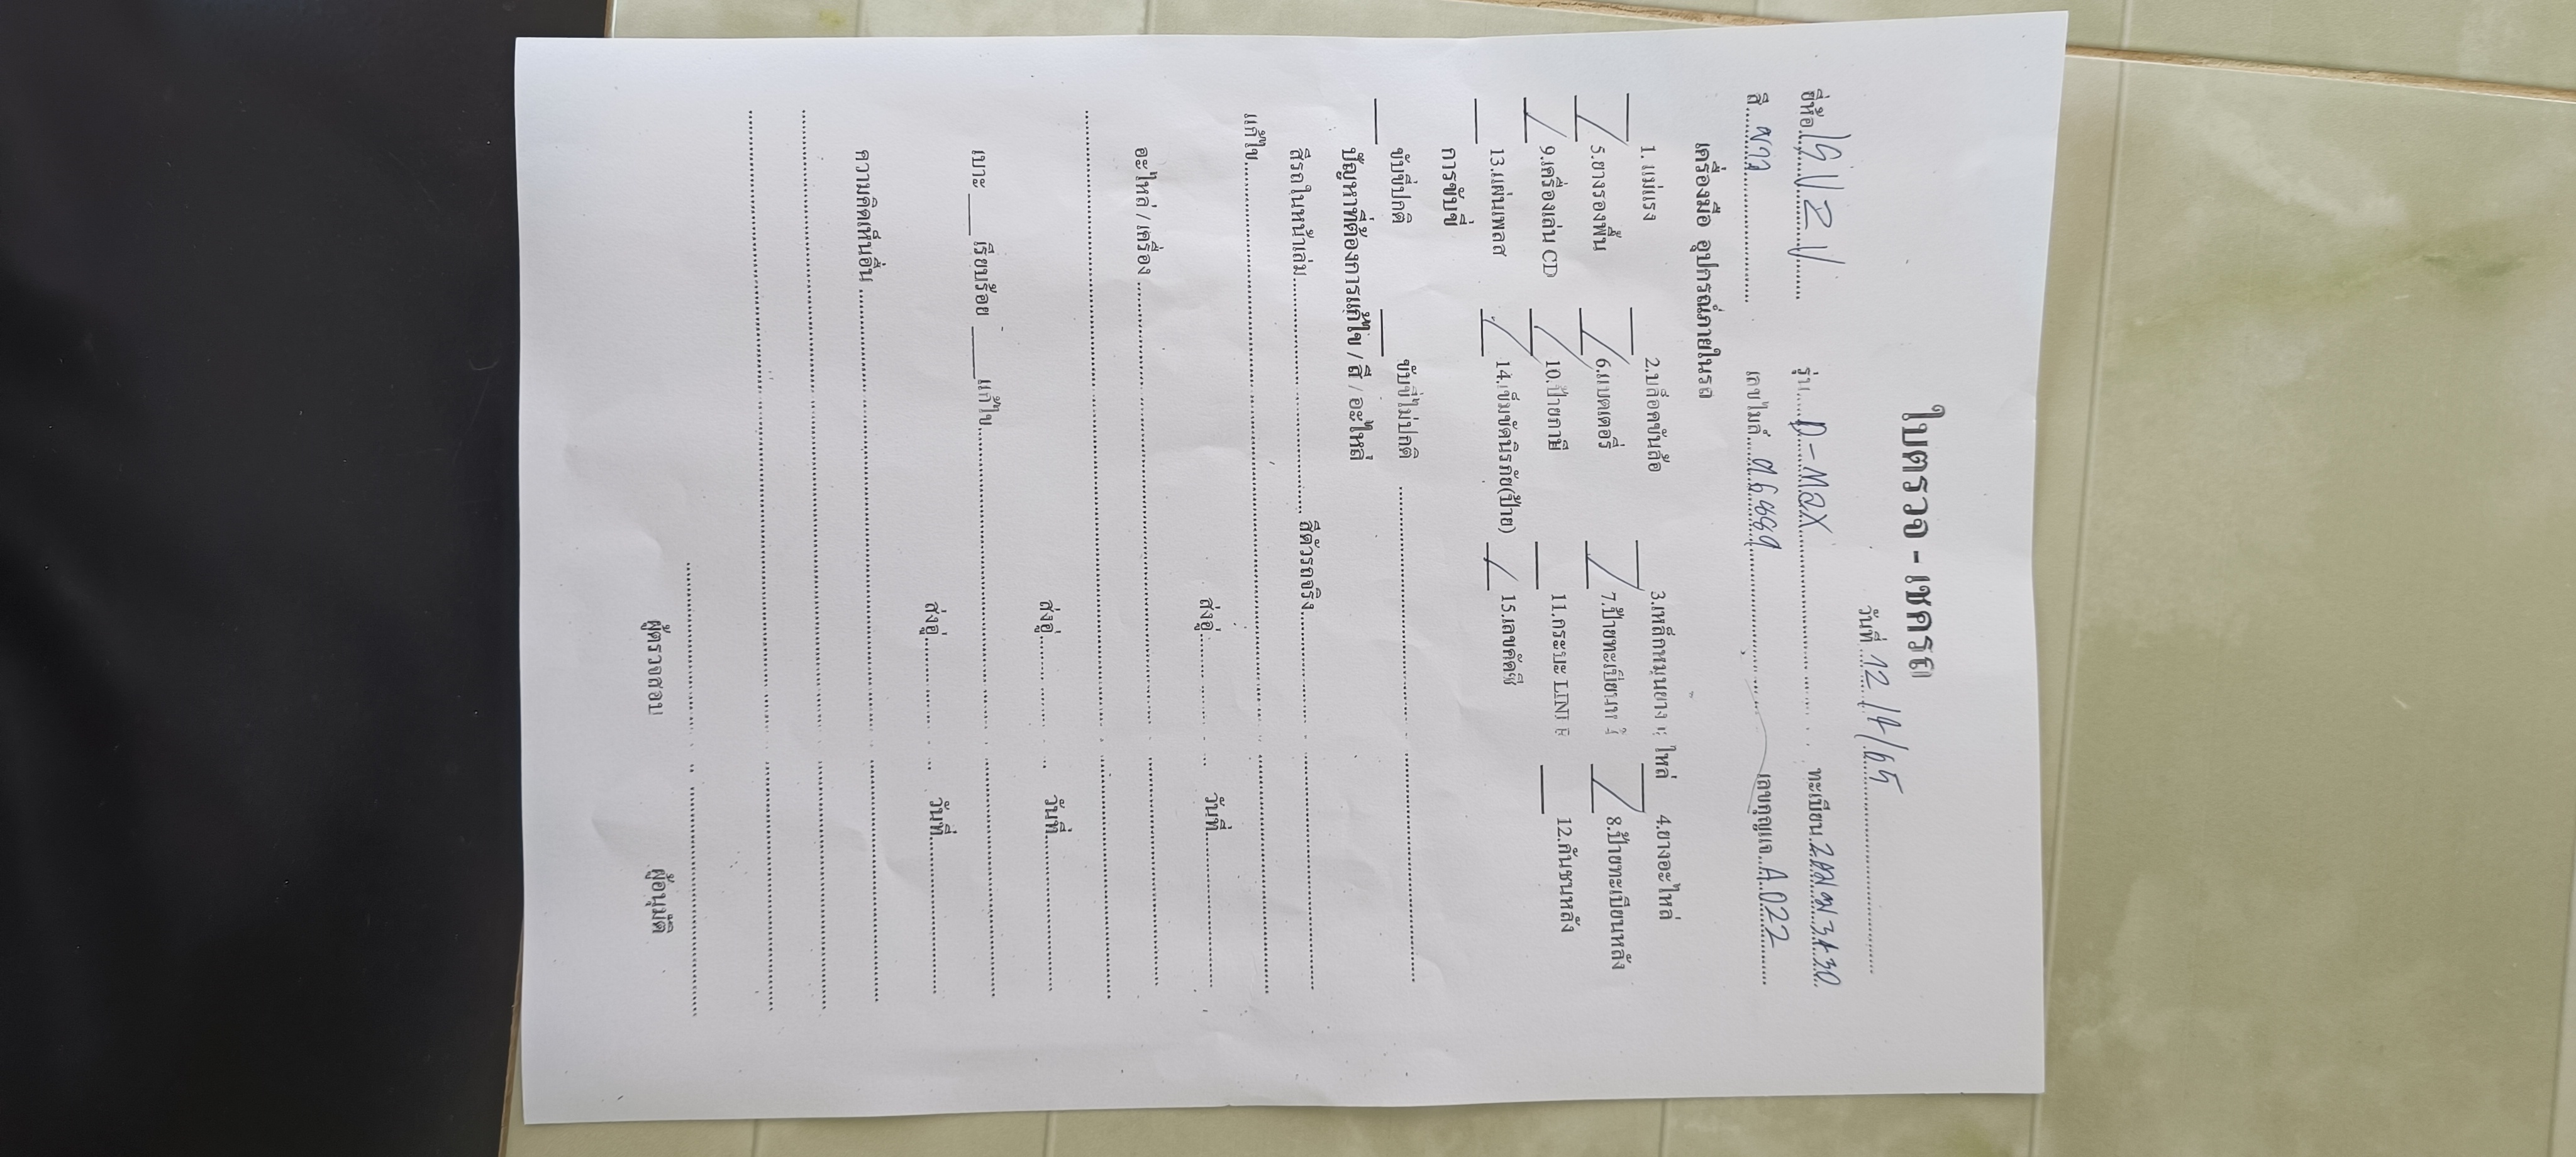 ใบตรวจ - เช็ครถ
วันที่ 12/4/65
ยี่ห้อ รุ่น D-Max ทะเบียน
สี ขาว เลขไมล์ เลขกุญแจ A022
เครื่องมือ อุปกรณ์ภายในรถ
1. แม่แรง 2.บล็อคขันล้อ 3.เหล็กหมุนยางอะไหล่ 4.ยางอะไหล่
5.ยางรองพื้น 6.แบตเตอรี่ 7.ป้ายทะเบียนหน้า 8.ป้ายทะเบียนหลัง
9.เครื่องเล่น CD 10.ป้ายภาษี 11.กระบะ LINER 12.กันชนหลัง
13.แผ่นเพลส 14.เข็มขัดนิรภัย(ป้าย) 15.เลขคัดซี
การขับขี่
ขับขี่ปกติ ขับขี่ไม่ปกติ
ปัญหาที่ต้องการแก้ไข / สี / อะไหล่
สีรถในหน้าเล่ม สีตัวรถจริง
แก้ไข
ส่งอู่ วันที่
อะไหล่ / เครื่อง
ส่งอู่ วันที่
เบาะ ____ เรียบร้อย ____ แก้ไข
ส่งอู่ วันที่
ความคิดเห็นอื่น
ผู้ตรวจสอบ ผู้อนุมัติ